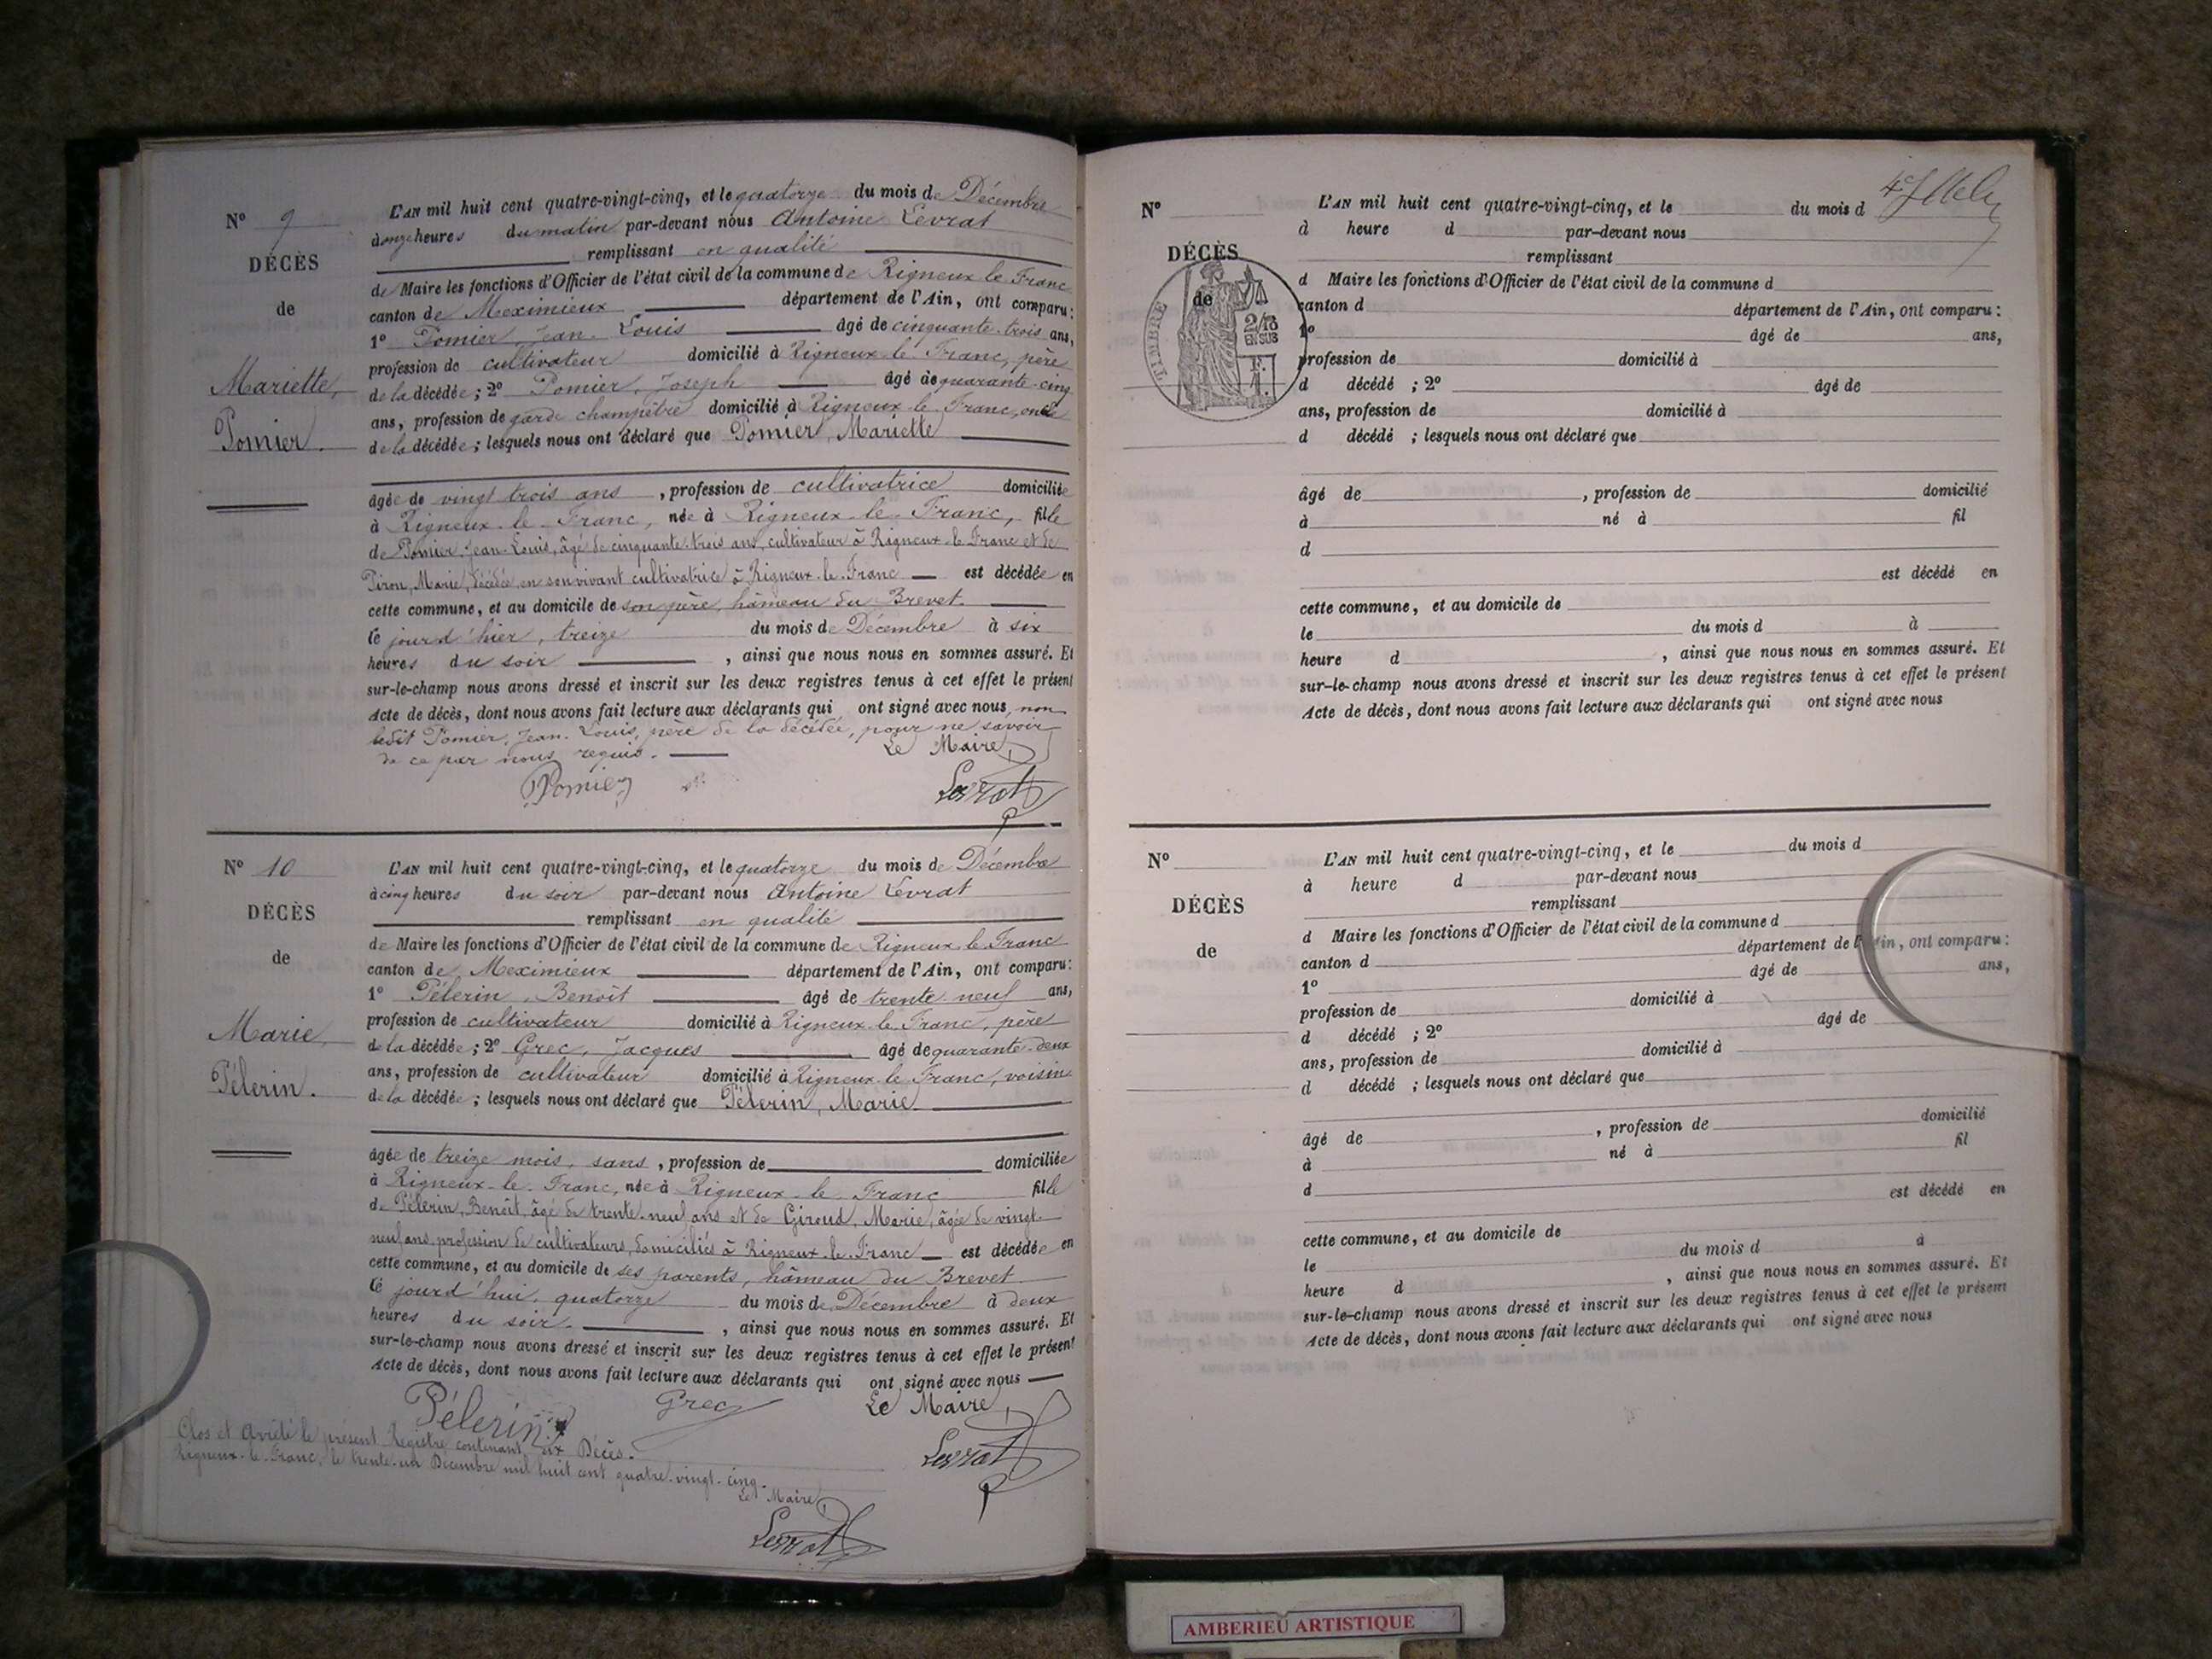 N° 9
DÉCÈS
de
Mariette
Pomier.
L'AN mil huit cent quatre-vingt-cinq, et le quatorze du mois de Décembre
à onze heures du matin par-devant nous Antoine Levrat
remplissant en qualité
de Maire les fonctions d'Officier de l'état civil de la commune de Rigneux le Franc
canton de Meximieux département de l'Ain, ont comparu :
1° Pomier, Jean-Louis âgé de cinquante-trois ans,
profession de cultivateur domicilié à Rigneux-le-Franc, père
de la décédée ; 2° Pomier, Joseph âgé de quarante-cinq
ans, profession de garde champêtre domicilié à Rigneux-le-Franc, oncle
de la décédée ; lesquels nous ont déclaré que Pomier, Mariette
âgée de vingt trois ans , profession de cultivatrice domiciliée
à Rigneux-le-Franc, née à Rigneux-le-Franc, fille
de Pomier Jean-Louis, âgé de cinquante-trois ans, cultivateur à Rigneux-le-Franc et de
Piron, Marie, décédée, en son vivant cultivatrice à Rigneux-le-Franc — est décédée en
cette commune, et au domicile de son père, hâmeau du Brevet.
le jour d'hier, treize du mois de Décembre à six
heures du soir , ainsi que nous nous en sommes assuré. Et
sur-le-champ nous avons dressé et inscrit sur les deux registres tenus à cet effet le présent
Acte de décès, dont nous avons fait lecture aux déclarants qui ont signé avec nous, non
ledit Pomier, Jean-Louis, père de la décédée, pour ne savoir
de ce par nous requis.
Le Maire
Pomier
Levrat
N° 10
DÉCÈS
de
Marie
Pélerin.
L'AN mil huit cent quatre-vingt-cinq, et le quatorze du mois de Décembre
à cinq heures du soir par-devant nous Antoine Levrat
remplissant en qualité
de Maire les fonctions d'Officier de l'état civil de la commune de Rigneux-le-Franc
canton de Meximieux département de l'Ain, ont comparu :
1° Pélerin, Benoît âgé de trente-neuf ans,
profession de cultivateur domicilié à Rigneux-le-Franc, père
de la décédée ; 2° Grec, Jacques âgé de quarante-deux
ans, profession de cultivateur domicilié à Rigneux-le-Franc, voisin
de la décédée ; lesquels nous ont déclaré que Pélerin, Marie
âgée de treize mois, sans , profession de domiciliée
à Rigneux-le-Franc, née à Rigneux-le-Franc fille
de Pélerin, Benoît, âgé de trente-neuf ans et de Giroud, Marie, âgée de vingt-
neuf ans, profession de cultivateurs, domiciliés à Rigneux-le-Franc — est décédée en
cette commune, et au domicile de ses parents, hâmeau du Brevet
le jourd'hui, quatorze du mois de Décembre à deux
heures du soir. , ainsi que nous nous en sommes assuré. Et
sur-le-champ nous avons dressé et inscrit sur les deux registres tenus à cet effet le présent
Acte de décès, dont nous avons fait lecture aux déclarants qui ont signé avec nous —
Pélerin Grec Le Maire
Levrat
Clos et Arrêté le présent Registre contenant dix Décès.
Rigneux-le-Franc, le trente-un Décembre mil huit cent quatre-vingt-cinq.
Le Maire
Levrat
N°
DÉCÈS
de
TIMBRE
2/10
EN SUS
F.
1.
L'AN mil huit cent quatre-vingt-cinq, et le du mois d
à heure d par-devant nous
remplissant
d Maire les fonctions d'Officier de l'état civil de la commune d
canton d département de l'Ain, ont comparu :
1° âgé de ans,
profession de domicilié à
d décédé ; 2° âgé de
ans, profession de domicilié à
d décédé ; lesquels nous ont déclaré que
âgé de , profession de domicilié
à né à fil
d
est décédé en
cette commune, et au domicile de
le du mois d à
heure d , ainsi que nous nous en sommes assuré. Et
sur-le-champ nous avons dressé et inscrit sur les deux registres tenus à cet effet le présent
Acte de décès, dont nous avons fait lecture aux déclarants qui ont signé avec nous
N°
DÉCÈS
de
L'AN mil huit cent quatre-vingt-cinq, et le du mois d
à heure d par-devant nous
remplissant
d Maire les fonctions d'Officier de l'état civil de la commune d
canton d département de l'Ain, ont comparu :
1° âgé de ans,
profession de domicilié à
d décédé ; 2° âgé de
ans, profession de domicilié à
d décédé ; lesquels nous ont déclaré que
âgé de , profession de domicilié
à né à fil
d
est décédé en
cette commune, et au domicile de
le du mois d à
heure d , ainsi que nous nous en sommes assuré. Et
sur-le-champ nous avons dressé et inscrit sur les deux registres tenus à cet effet le présent
Acte de décès, dont nous avons fait lecture aux déclarants qui ont signé avec nous
AMBERIEU ARTISTIQUE